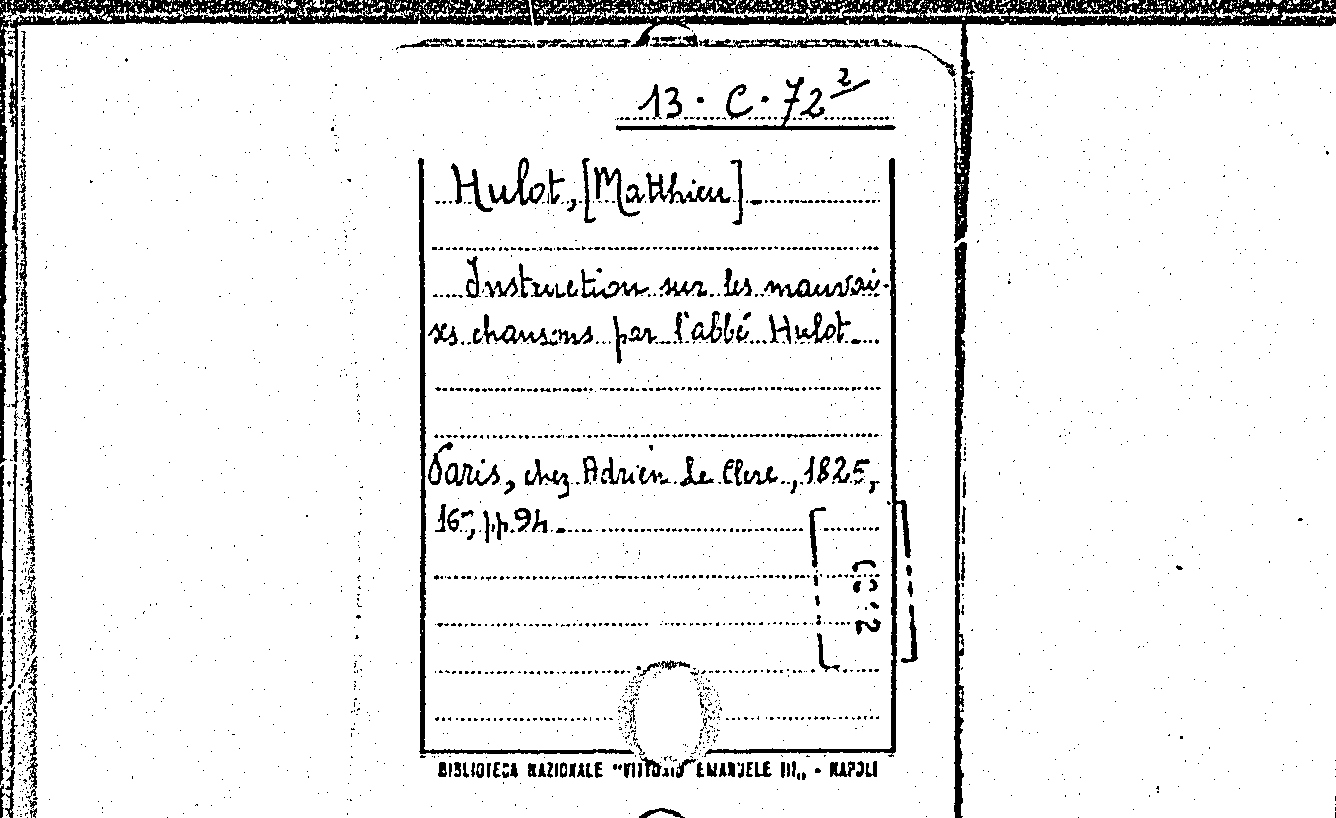 13. C. 72²
Hulot, [Matthieu].
Instruction sur les mauvai-
ses chansons par l'abbé Hulot.
Paris, chez Adrien Le Clere, 1825,
16°, pp. 94.
BIBLIOTECA NAZIONALE "VITTORIO EMANUELE III„ - NAPOLI